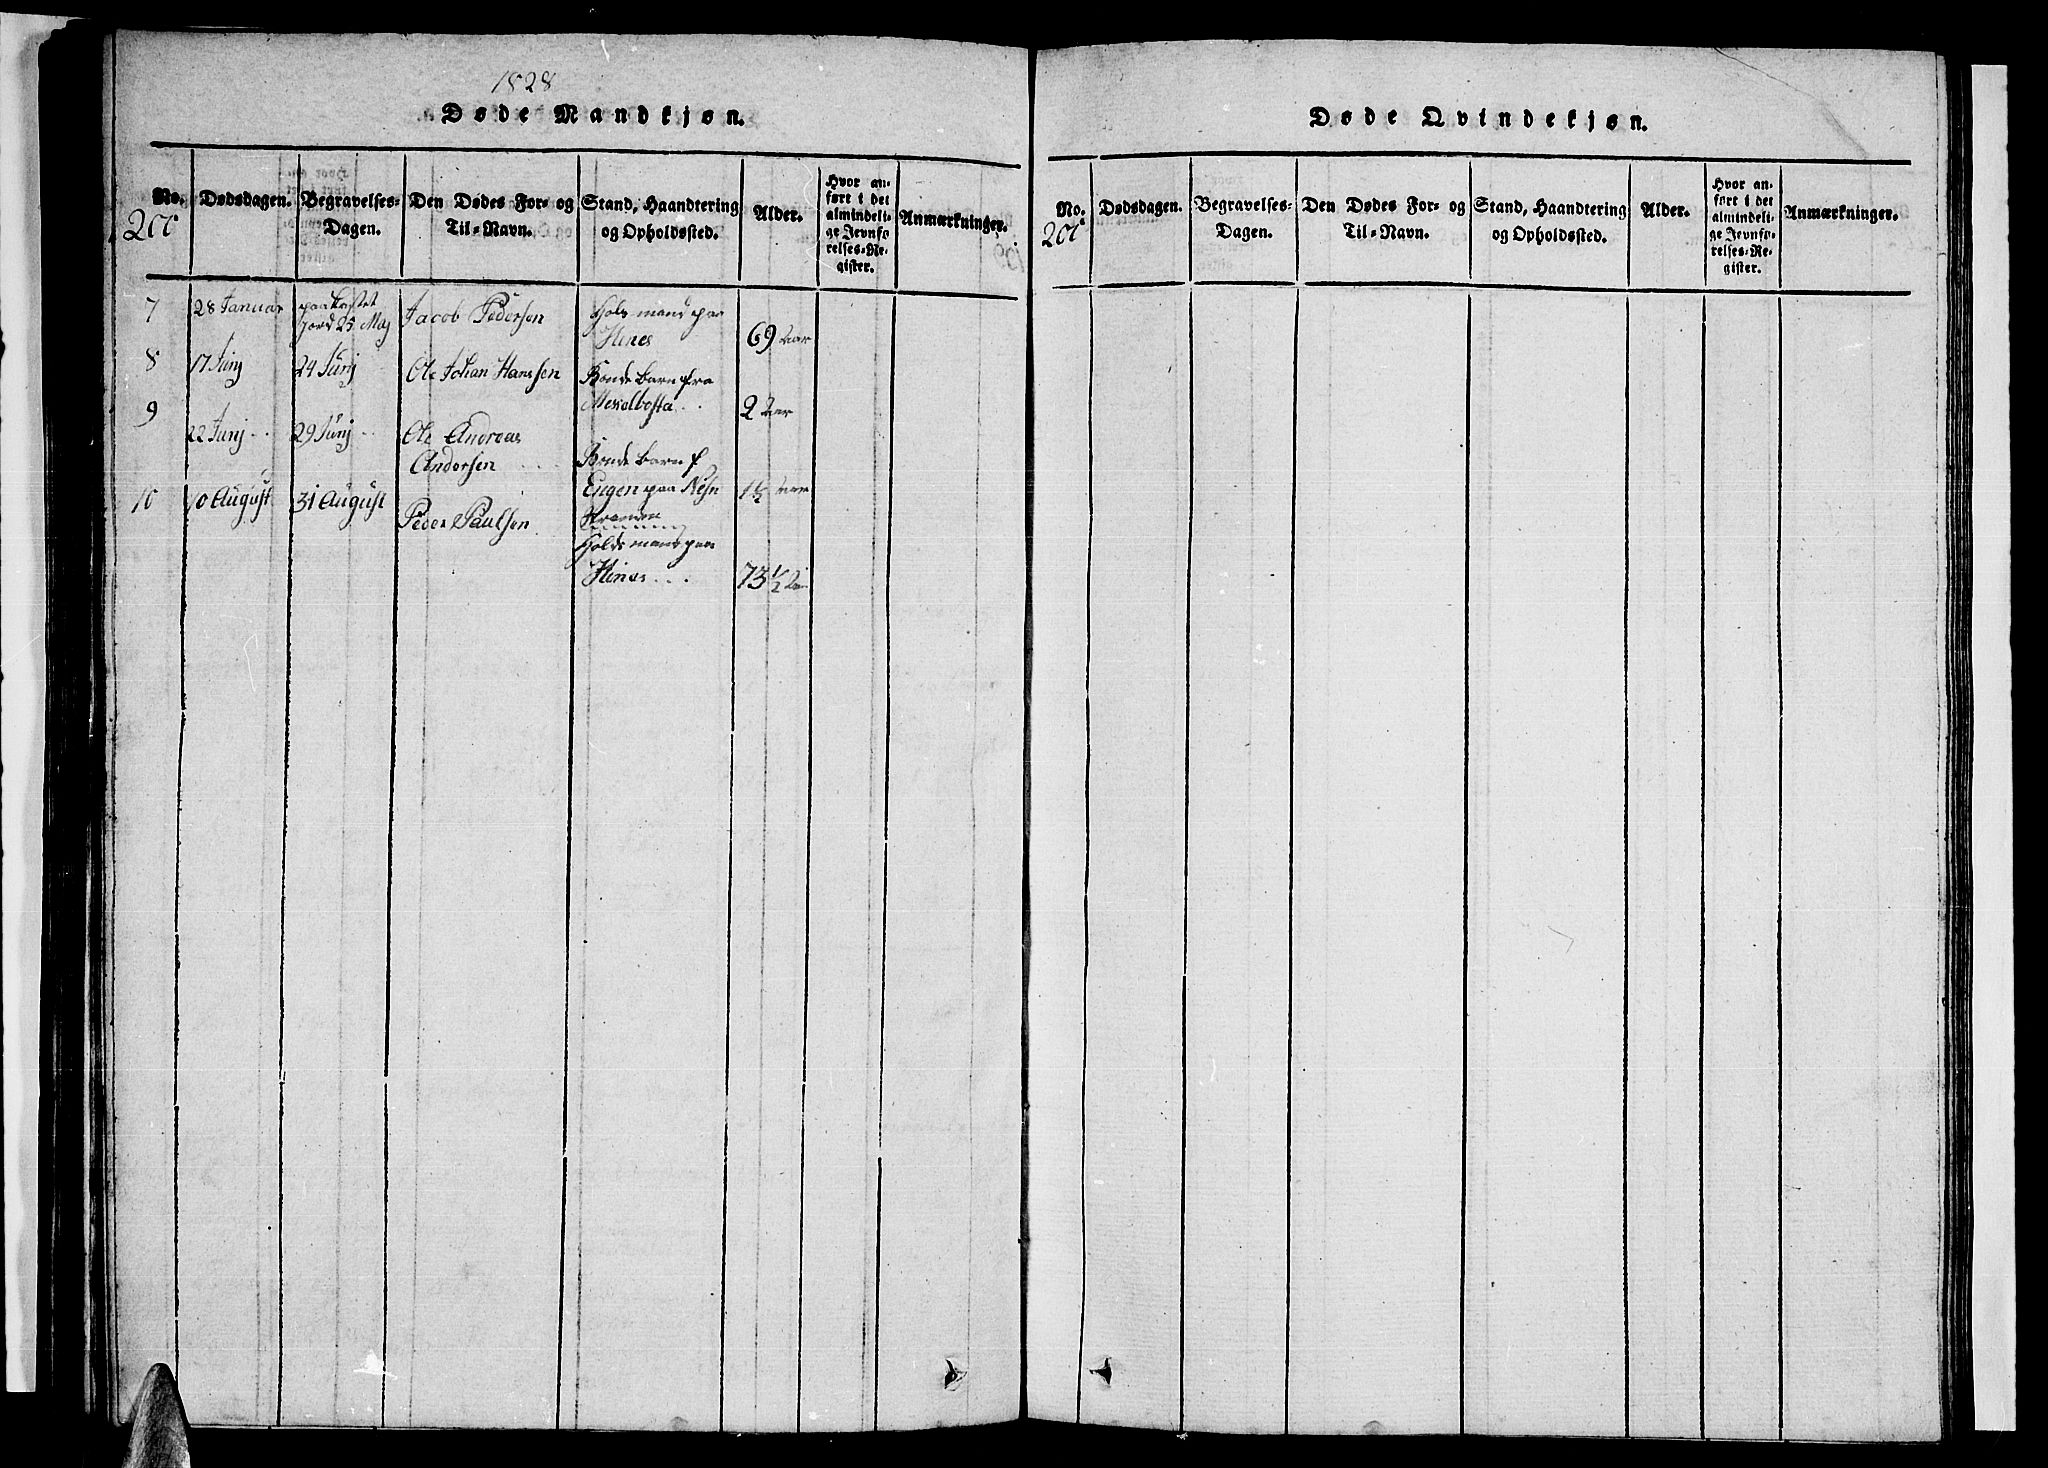 1828
Døde Mandkjøn.
No.
Dødsdagen.
Begravelses-
Dagen.
Den Dødes For- og
Til-Navn.
Stand, Haandtering
og Opholdssted.
Alder.
Hvor an-
ført i det
almindeli-
ge Jevnfø-
relses-Re-
gister.
Anmærkninger.
7
28 Januar
paakastet
Jord 25 Maj
Jacob Pedersen
Holsmand paa
Hines
69 Aar
8
17 Junj
24 Junj
Ole Johan Hanssen
Bonde barn fra
2 Aar
9
22 Junj
29 Junj
Ole Andreas
Andersen
Bonde barn f
Engen paa Nesn
1½ Aar
10
10 August
31 August
Peder Paulsen
Holdsmand paa
Hines
73 ½ Aar
Døde Qvindekjøn.
No.
Dødsdagen.
Begravelses-
Dagen.
Den Dødes For- og
Til-Navn.
Stand, Haandtering
og Opholdssted.
Alder.
Hvor an-
ført i det
almindeli-
ge Jevnfø-
relses-Re-
gister.
Anmærkninger.